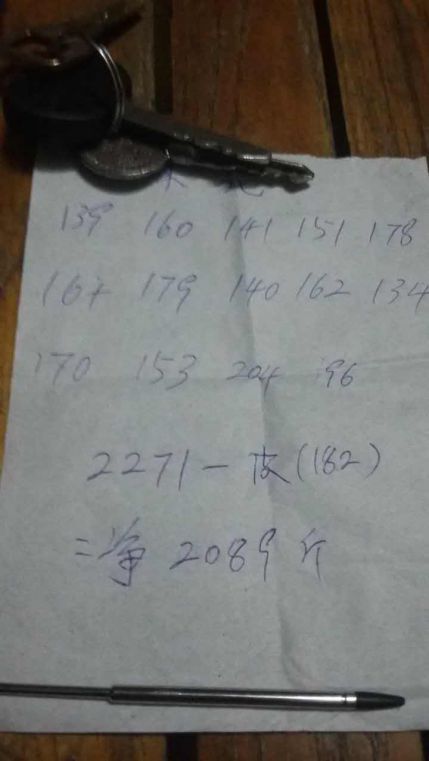 139 160 141 151 178
164 179 140 162 134
170 153 204 196
2271-皮(182)
=净 2089斤